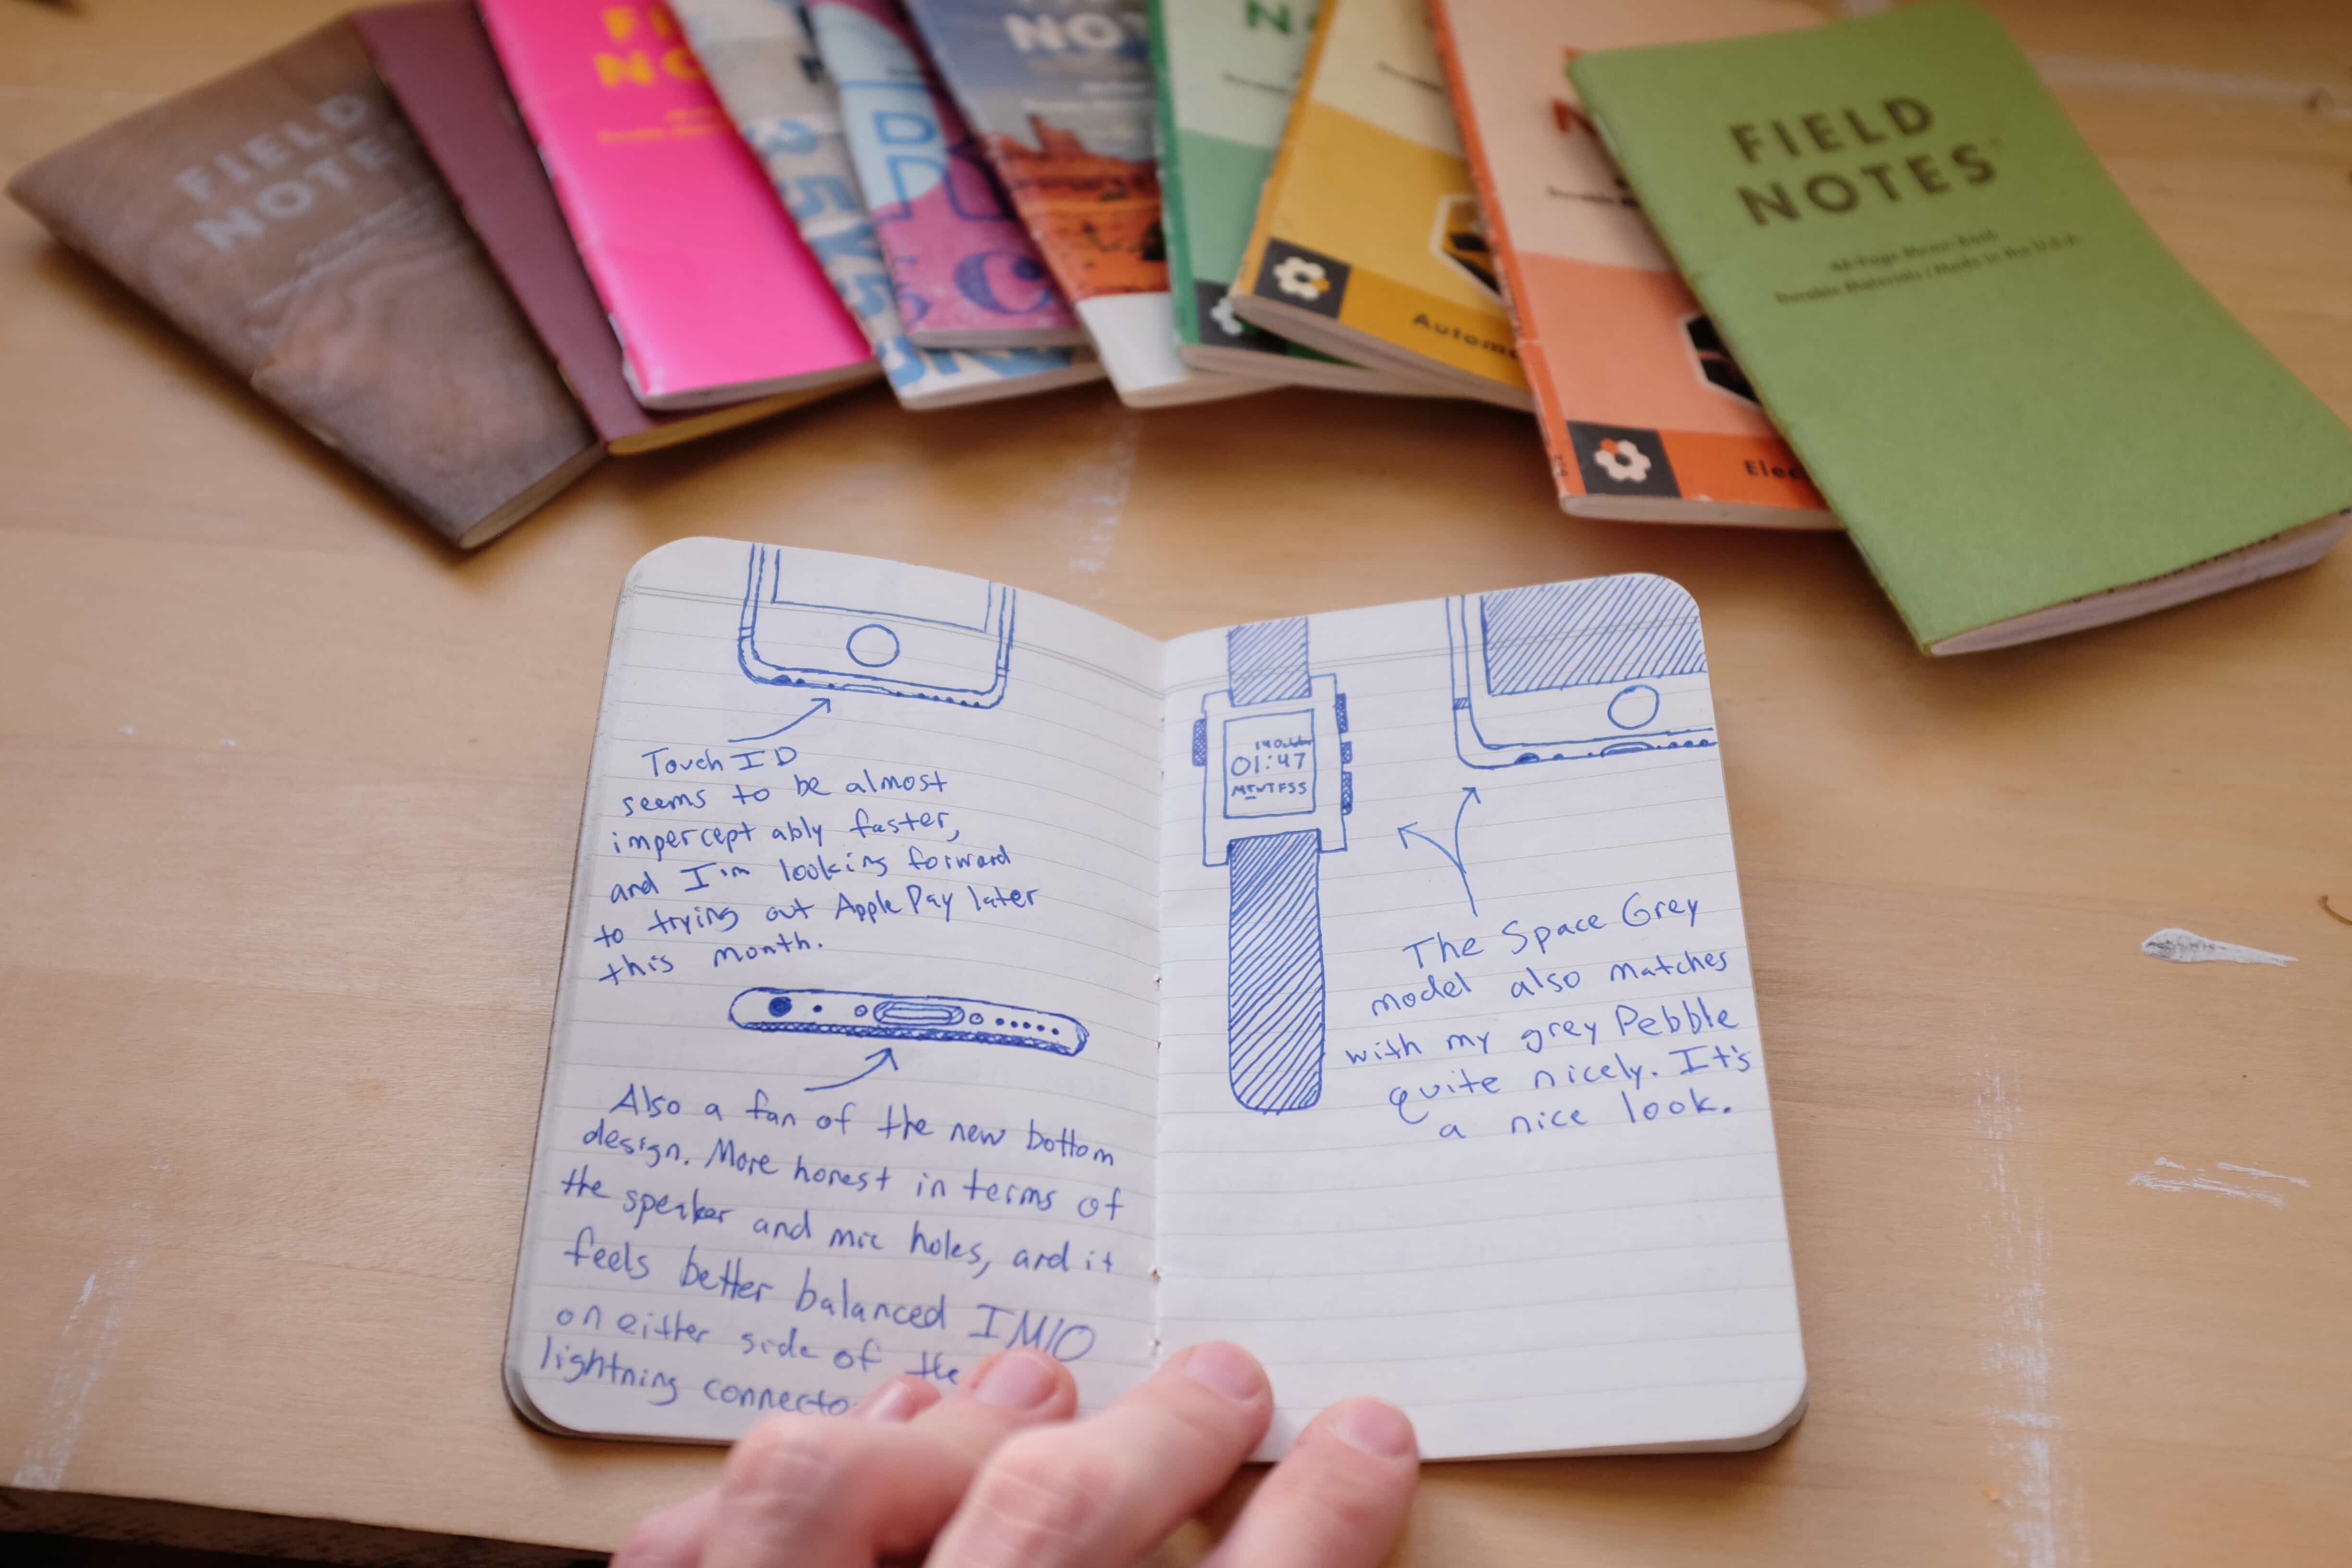 FIELD
NOTES
FI
NO
NOT
N
Autom
Elec
FIELD
NOTES
48-Page Memo Book
Durable Materials / Made in the U.S.A.
Touch ID
seems to be almost
impercept ably faster,
and I'm looking forward
to trying out Apple Pay later
this month.
Also a fan of the new bottom
design. More honest in terms of
the speaker and mic holes, and it
feels better balanced IMO
on either side of the
lightning connecto
14 October
01:47
MTWTFSS
The Space Grey
model also matches
with my grey Pebble
quite nicely. It's
a nice look.